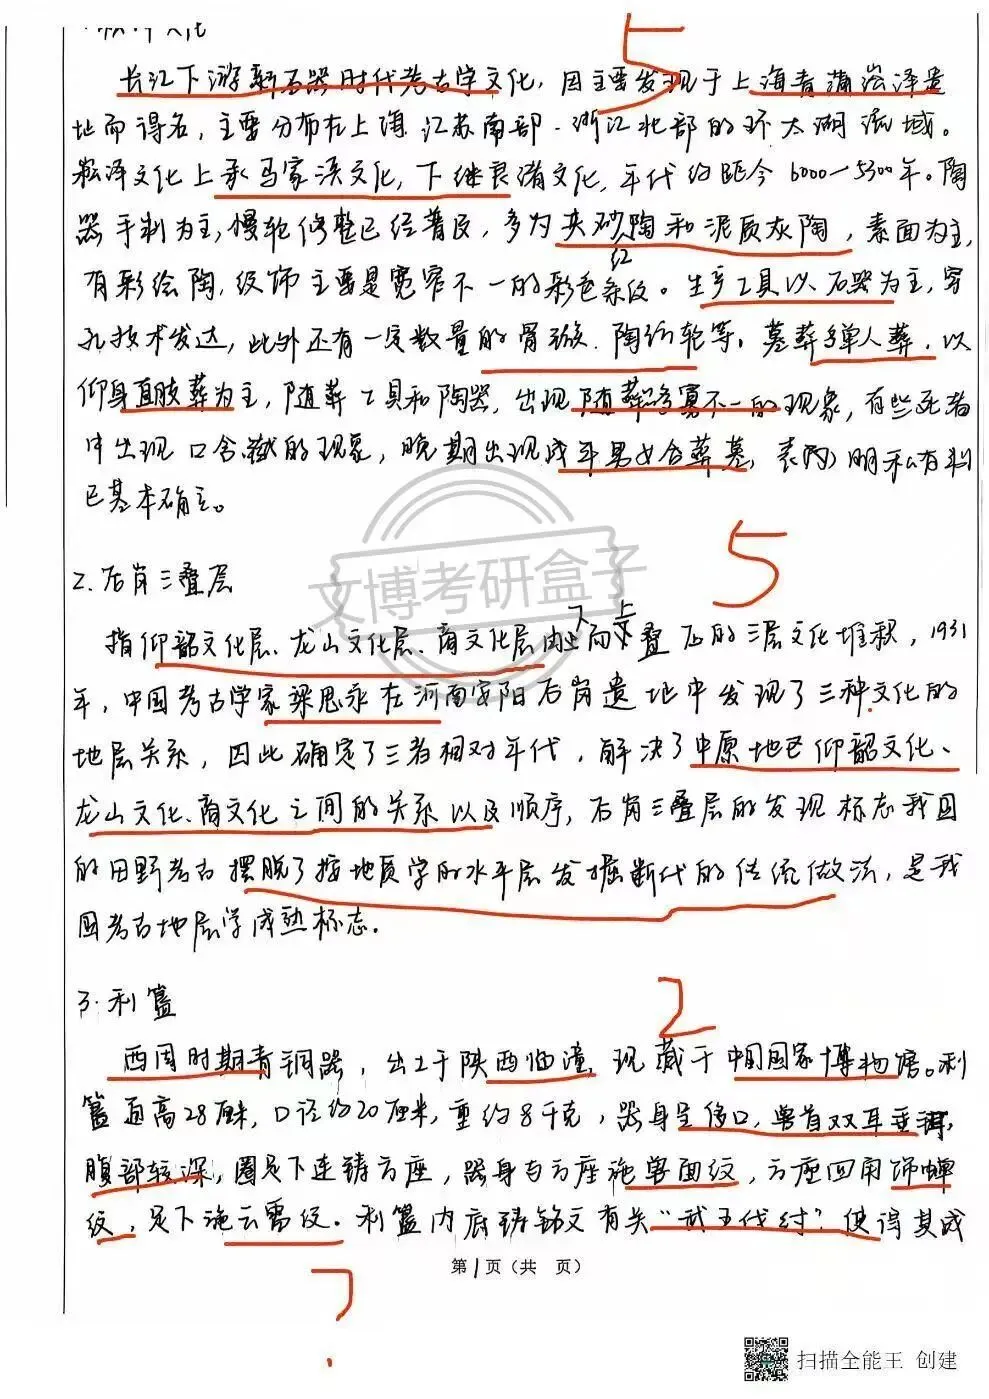 5
长江下游新石器时代考古学文化，因主要发现于上海青浦崧泽遗
址而得名，主要分布在上海、江苏南部、浙江北部的环太湖流域。
崧泽文化上承马家浜文化，下继良渚文化，年代约距今6000—5300年。陶
器手制为主，慢轮修整已经普及，多为夹砂陶和泥质灰陶，素面为主，
红
有彩绘陶，纹饰主要是宽窄不一的彩色条纹。生产工具以石器为主，穿
孔技术发达，此外还有一定数量的骨镞、陶纺轮等。墓葬多单人葬，以
仰身直肢葬为主，随葬工具和陶器，出现随葬多寡不一的现象，有些死者
中出现口含的现象，晚期出现成年男女合葬墓，表明私有制
已基本确立。
文博考研盒子
5
2.后岗三叠层
下 上
指仰韶文化层、龙山文化层、商文化层由而叠压的三层文化堆积，1931
年，中国考古学家梁思永在河南安阳后岗遗址中发现了三种文化的
地层关系，因此确定了三者相对年代，解决了中原地区仰韶文化、
龙山文化、商文化之间的关系以及顺序，后岗三叠层的发现标志我国
的田野考古摆脱了按地质学的水平层发掘断代的传统做法，是我
国考古地层学成熟标志。
2
3.利簋
西周时期青铜器，出土于陕西临潼，现藏于中国国家博物馆。利
簋通高28厘米，口径约20厘米，重约8千克，器身呈侈口，兽首双耳垂珥，
腹部较深，圈足下连铸方座，器身与方座施兽面纹，方座四角饰蝉
纹，足下施云雷纹。利簋内底铸铭文有关“武王伐纣”使得其成
第1页（共 页）
扫描全能王 创建